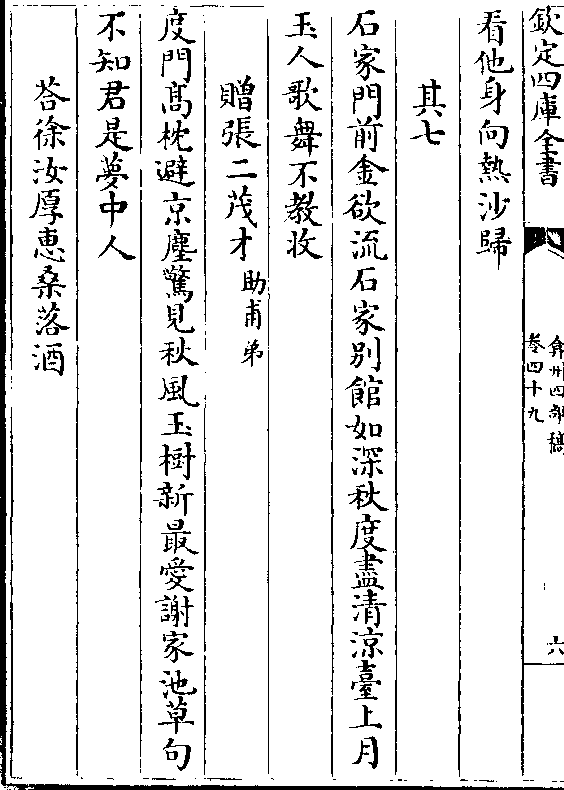 欽定四庫全書
弇州四部稿
卷四十九
六
看他身向熱沙歸
其七
石家門前金欲流石家别館如深秋度盡清涼臺上月
玉人歌舞不教妆
贈張二茂才助甫弟
度門髙枕避京塵驚見秋風玉樹新最愛謝家池草句
不知君是夢中人
荅徐汝厚恵桑落酒